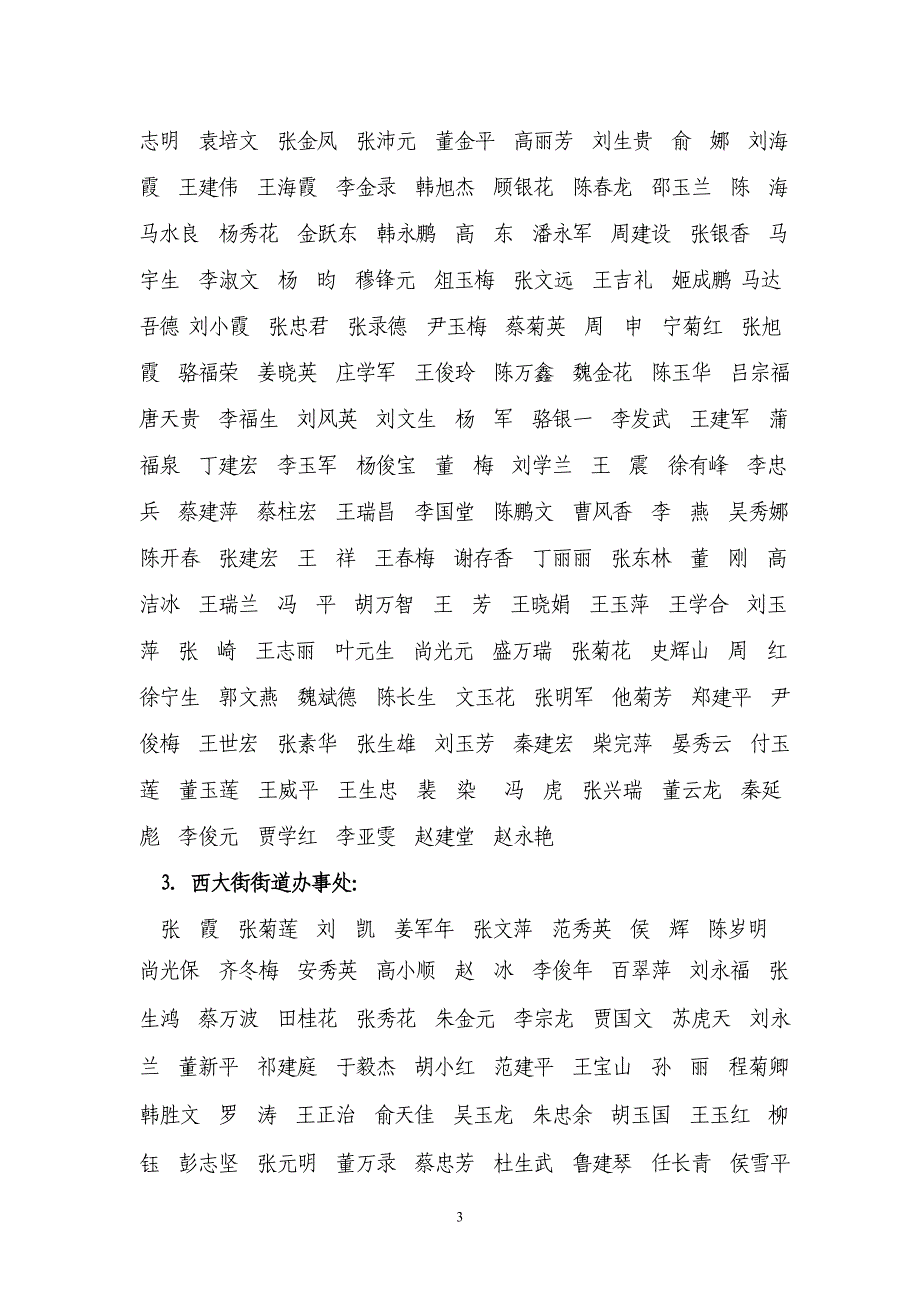 志明　袁培文　张金凤　张沛元　董金平　高丽芳　刘生贵　俞　娜　刘海
霞　王建伟　王海霞　李金录　韩旭杰　顾银花　陈春龙　邵玉兰　陈　海
马水良　杨秀花　金跃东　韩永鹏　高　东　潘永军　周建设　张银香　马
宇生　李淑文　杨　昀　穆锋元　俎玉梅　张文远　王吉礼　姬成鹏 马达
吾德 刘小霞　张忠君　张录德　尹玉梅　蔡菊英　周　申　宁菊红　张旭
霞　骆福荣　姜晓英　庄学军　王俊玲　陈万鑫　魏金花　陈玉华　吕宗福
唐天贵　李福生　刘风英　刘文生　杨　军　骆银一　李发武　王建军　蒲
福泉　丁建宏　李玉军　杨俊宝　董　梅　刘学兰　王　震　徐有峰　李忠
兵　蔡建萍　蔡柱宏　王瑞昌　李国堂　陈鹏文　曹风香　李　燕　吴秀娜
陈开春　张建宏　王　祥　王春梅　谢存香　丁丽丽　张东林　董　刚　高
洁冰　王瑞兰　冯　平　胡万智　王　芳　王晓娟　王玉萍　王学合　刘玉
萍　张　崎　王志丽　叶元生　尚光元　盛万瑞　张菊花　史辉山　周　红
徐宁生　郭文燕　魏斌德　陈长生　文玉花　张明军　他菊芳　郑建平　尹
俊梅　王世宏　张素华　张生雄　刘玉芳　秦建宏　柴完萍　晏秀云　付玉
莲　董玉莲　王威平　王生忠　裴　染　冯　虎　张兴瑞　董云龙　秦延
彪　李俊元　贾学红　李亚雯　赵建堂　赵永艳
3. 西大街街道办事处:
张　霞　张菊莲　刘　凯　姜军年　张文萍　范秀英　侯　辉　陈岁明
尚光保　齐冬梅　安秀英　高小顺　赵　冰　李俊年　百翠萍　刘永福　张
生鸿　蔡万波　田桂花　张秀花　朱金元　李宗龙　贾国文　苏虎天　刘永
兰　董新平　祁建庭　于毅杰　胡小红　范建平　王宝山　孙　丽　程菊卿
韩胜文　罗　涛　王正治　俞天佳　吴玉龙　朱忠余　胡玉国　王玉红　柳
钰　彭志坚　张元明　董万录　蔡忠芳　杜生武　鲁建琴　任长青　侯雪平
3